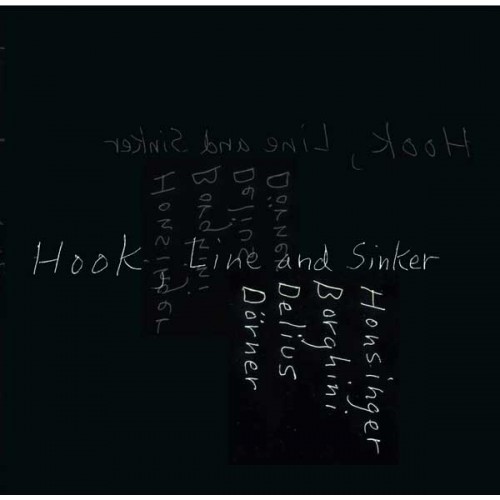 Hook, Line and Sinker
Hook, Line and Sinker
Honsinger
Borghini
Delius
Dörner
Honsinger
Borghini
Delius
Dörner